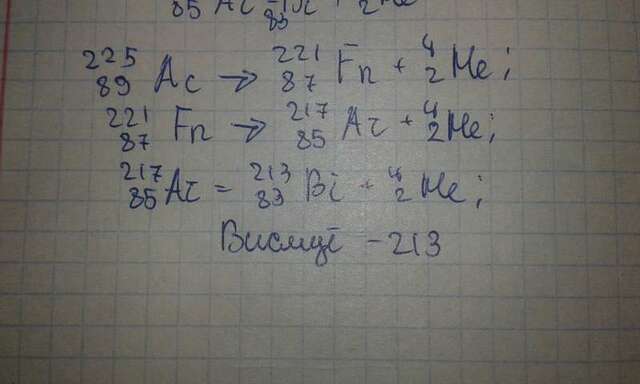 85 At 83 Bi + 4 2 He
225 89 Ac → 221 87 Fr + 4 2 He;
221 87 Fr → 217 85 At + 4 2 He;
217 85 At = 213 83 Bi + 4 2 He;
Висмут - 213